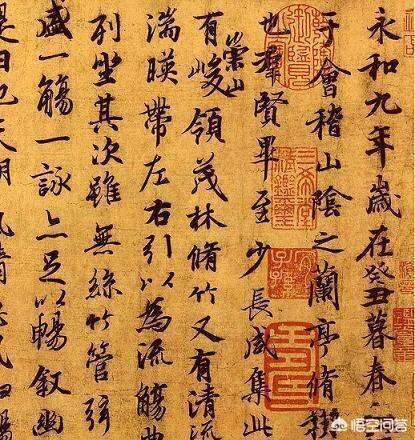 永和九年歲在癸丑暮春
于會稽山陰之蘭亭脩稧
也羣賢畢至少長咸集此
有崇山峻領茂林脩竹又有清流
湍暎帶左右引以為流觴曲
列坐其次雖無絲竹管弦
盛一觴一詠亦足以暢敘幽
是日也天朗氣清
三希堂精鑒璽
宜子孫
悟空问答